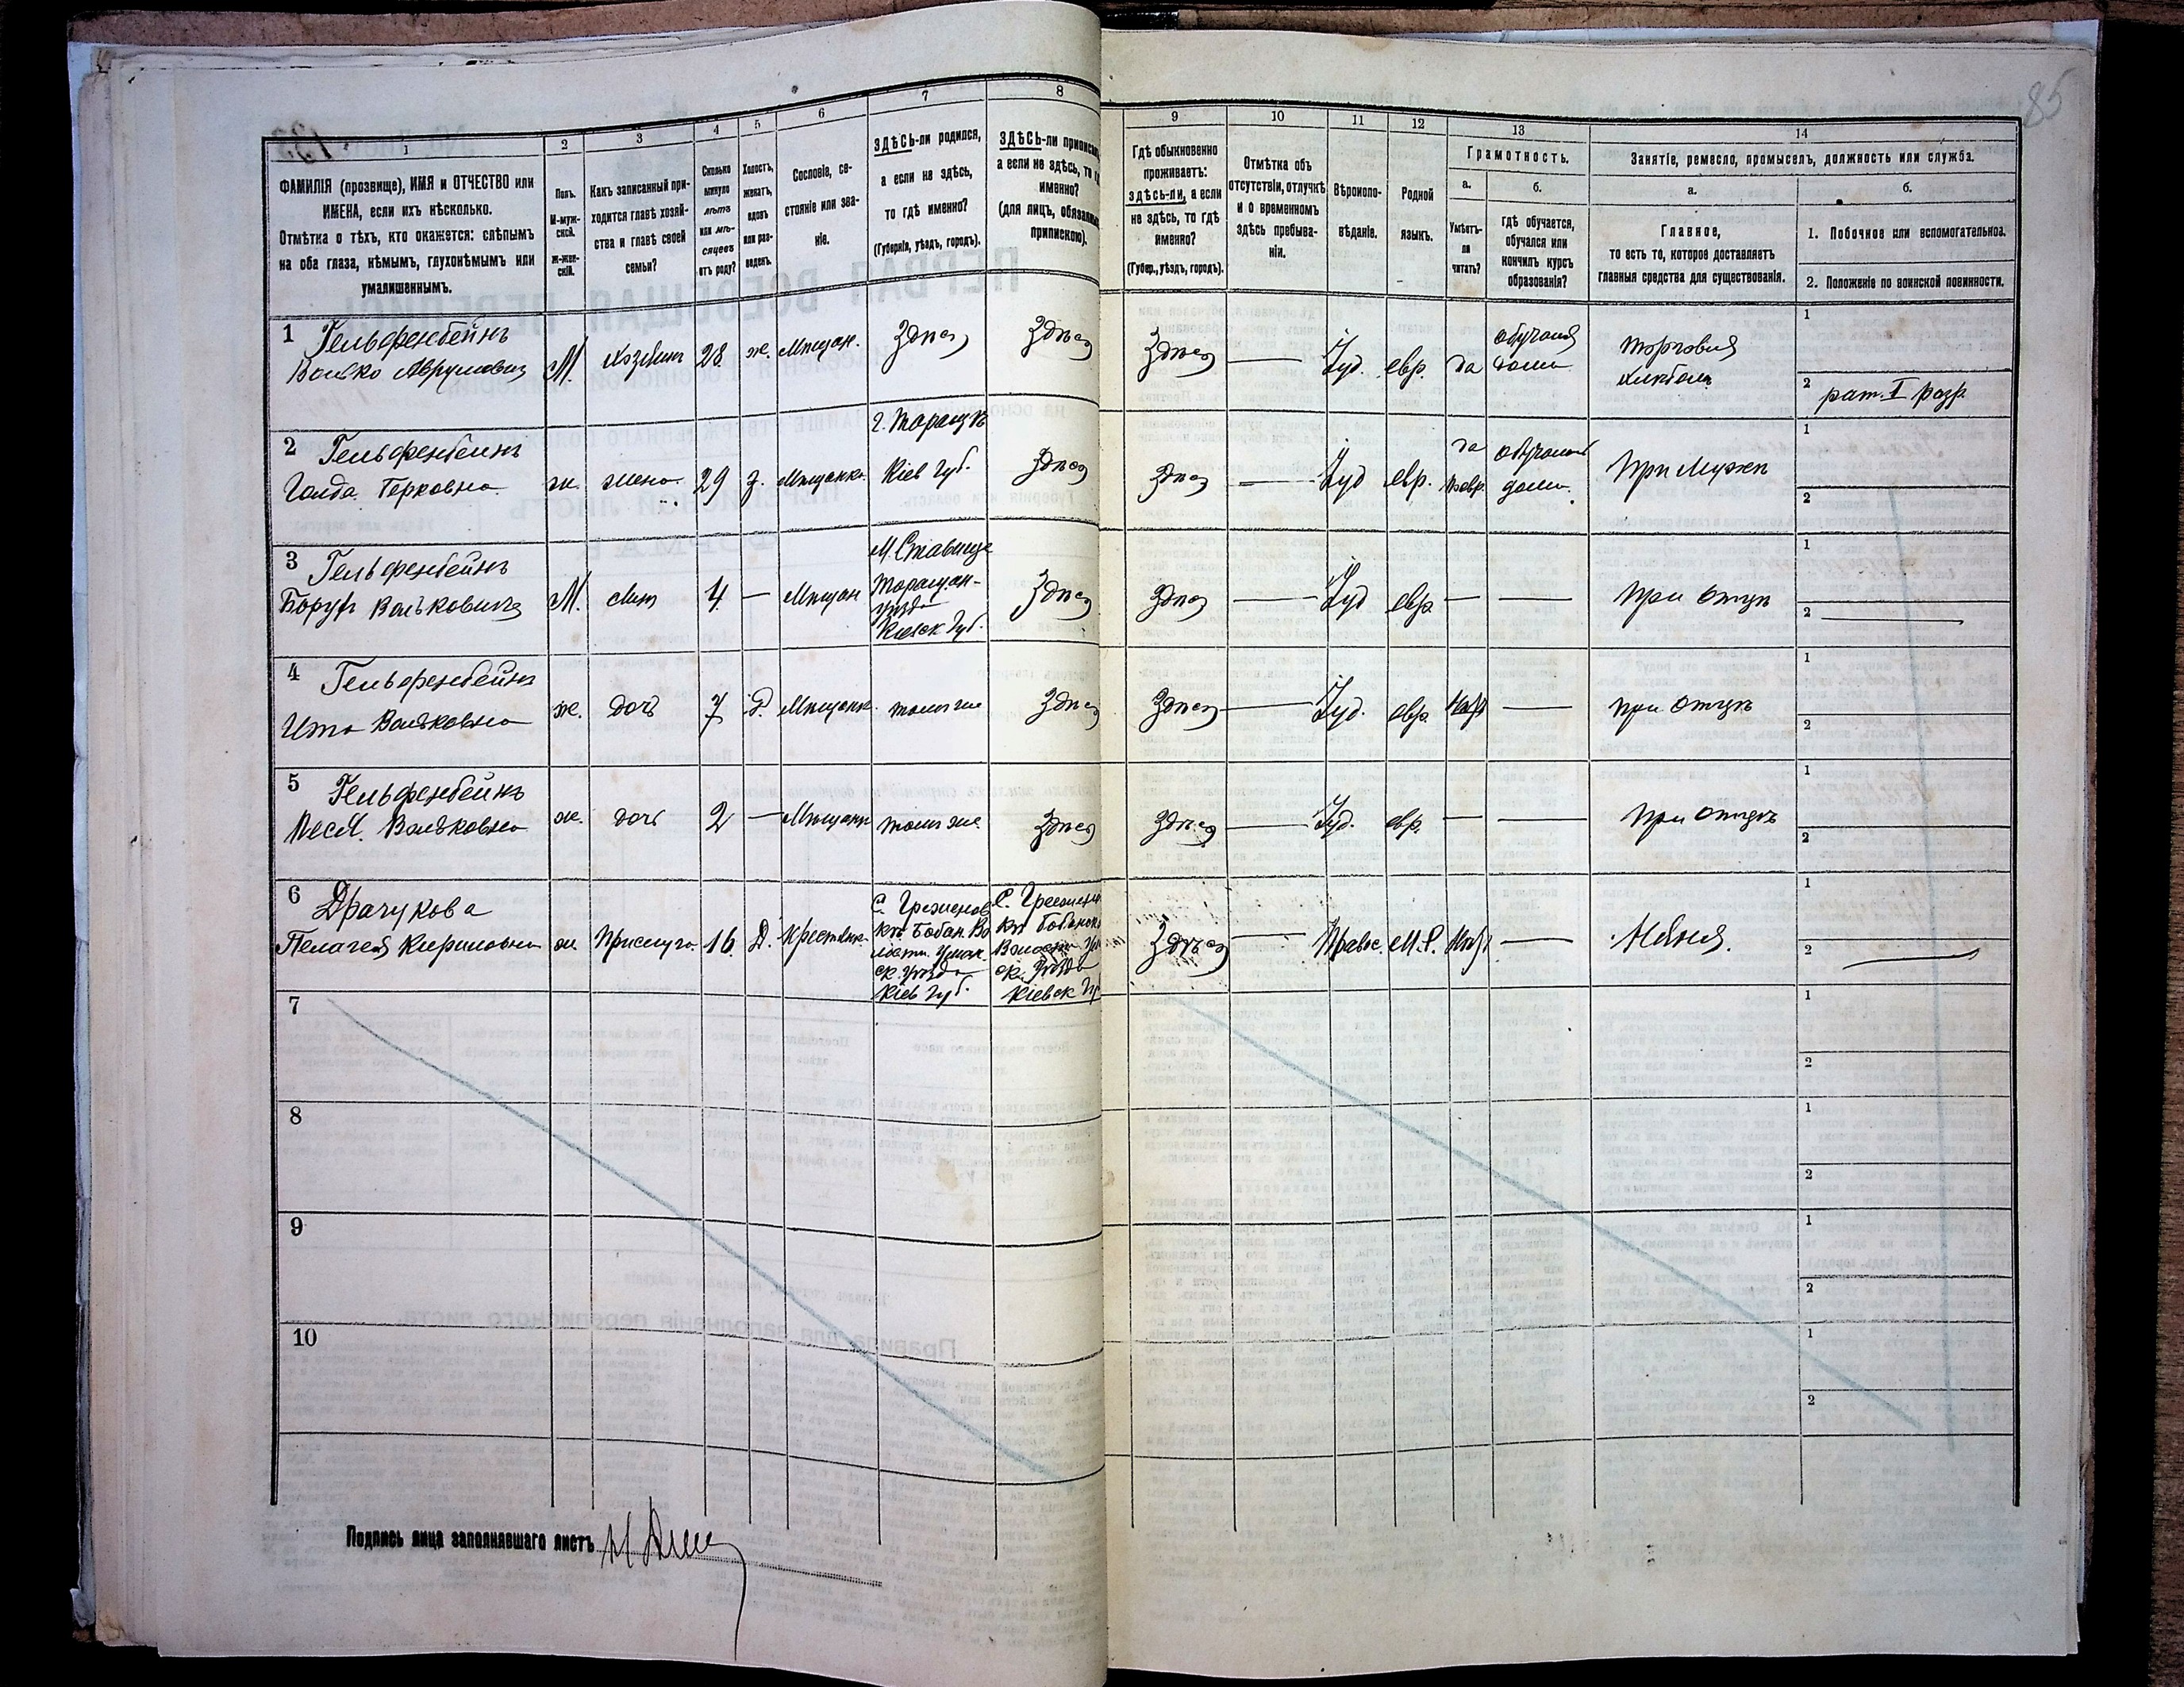 85
1
2
3
4
5
6
7
8
9
10
11
12
13
14
ФАМИЛІЯ (прозвище), ИМЯ и ОТЧЕСТВО или
ИМЕНА, если ихъ нѣсколько.
Отмѣтка о тѣхъ, кто окажется: слѣпымъ
на оба глаза, нѣмымъ, глухонѣмымъ или
умалишеннымъ.
Полъ.
М-муж-
ской.
Ж-жен-
скій.
Какъ записанный при-
ходится главѣ хозяй-
ства и главѣ своей
семьи?
Сколько
минуло
лѣтъ
или мѣ-
сяцевъ
отъ роду?
Холостъ,
женатъ,
вдовъ
или раз-
веденъ.
Сословіе, со-
стояніе или зва-
ніе.
ЗДѢСЬ-ли родился,
а если не здѣсь,
то гдѣ именно?
(Губернія, уѣздъ, городъ).
ЗДѢСЬ-ли приписанъ,
а если не здѣсь, то гдѣ
именно?
(для лицъ, обязанныхъ
припискою).
Гдѣ обыкновенно
проживаетъ:
здѣсь-ли, а если
не здѣсь, то гдѣ
именно?
(Губер., уѣздъ, городъ).
Отмѣтка объ
отсутствіи, отлучкѣ
и о временномъ
здѣсь пребыва-
ніи.
Вѣроиспо-
вѣданіе.
Родной
языкъ.
Грамотность.
а.
Умѣетъ-
ли
читать?
б.
гдѣ обучается,
обучался или
кончилъ курсъ
образованія?
Занятіе, ремесло, промыселъ, должность или служба.
а.
Главное,
то есть то, которое доставляетъ
главныя средства для существованія.
б.
1. Побочное или вспомогательное.
2. Положеніе по воинской повинности.
1 Гельфенбейнъ
Волько Аврумовичъ
М.
хозяинъ
28
ж.
Мѣщан.
Здѣсь
Здѣсь
Здѣсь
Іуд.
евр.
да
обучался
дома
торговля
хлѣбомъ
1
2 рат. I разр.
2 Гельфенбейнъ
Голда Герковна
ж.
жена
29
з.
Мѣщанка
г. Тараща
Кіев губ.
Здѣсь
Здѣсь
Іуд
евр.
да
по евр.
обучалась
дома.
При Мужѣ
1
2
3 Гельфенбейнъ
Борух Вольковичъ
М.
сынъ
4
—
Мѣщан
М. Ставище
Таращан-
уѣзда
Кіевск губ.
Здѣсь
Здѣсь
Іуд
евр.
—
При Отцѣ
1
2
4 Гельфенбейнъ
Ита Вольковна
ж.
дочь
7
д.
Мѣщанк.
тамъ же
Здѣсь
Здѣсь
Іуд.
евр.
Нѣтъ
—
при Отцѣ
1
2
5 Гельфенбейнъ
Песя Вольковна
ж.
дочь
2
—
Мѣщанк
тамъ же
Здѣсь
Здѣсь
Іуд.
евр.
—
При Отцѣ
1
2
6 Драчукова
Пелагея Кириловна
ж
Прислуга
16.
Д.
крестьянк.
С. Греженов
къ Бабан. Во
лости Уман.
ск. уѣзда
Кіев губ.
С.
къ Бабанск
Волости Ум
ск. Уѣзда
Кіевск Гу
Здѣсь
Правос.
М.Р.
Нѣтъ
—
Няня.
1
2
7
1
2
8
1
2
9
1
2
10
1
2
Подпись лица заполнявшаго листъ